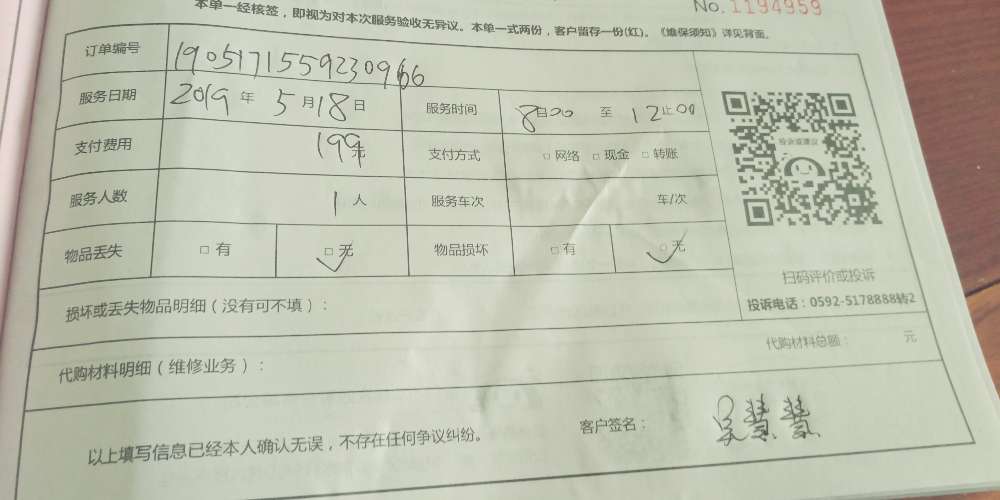 No.1194959
本单一经核签，即视为对本次服务验收无异议。本单一式两份，客户留存一份(红)。《维保须知》详见背面。
订单编号 1905171559230966
服务日期 2019 年 5 月 18 日 服务时间 8:00 至 12:00
支付费用 199元 支付方式 □ 网络 □ 现金 □ 转账
服务人数 1 人 服务车次 车/次
物品丢失 □ 有 □ 无 物品损坏 □ 有 □ 无
扫码评价或投诉
投诉电话：0592-5178888转2
损坏或丢失物品明细（没有可不填）：
代购材料总额： 元
代购材料明细（维修业务）：
客户签名： 吴慧慧
以上填写信息已经本人确认无误，不存在任何争议纠纷。